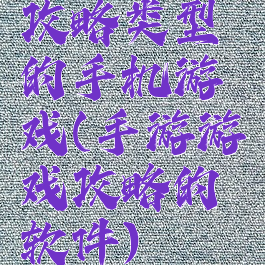 攻略类型
的手机游
戏(手游游
戏攻略的
软件)